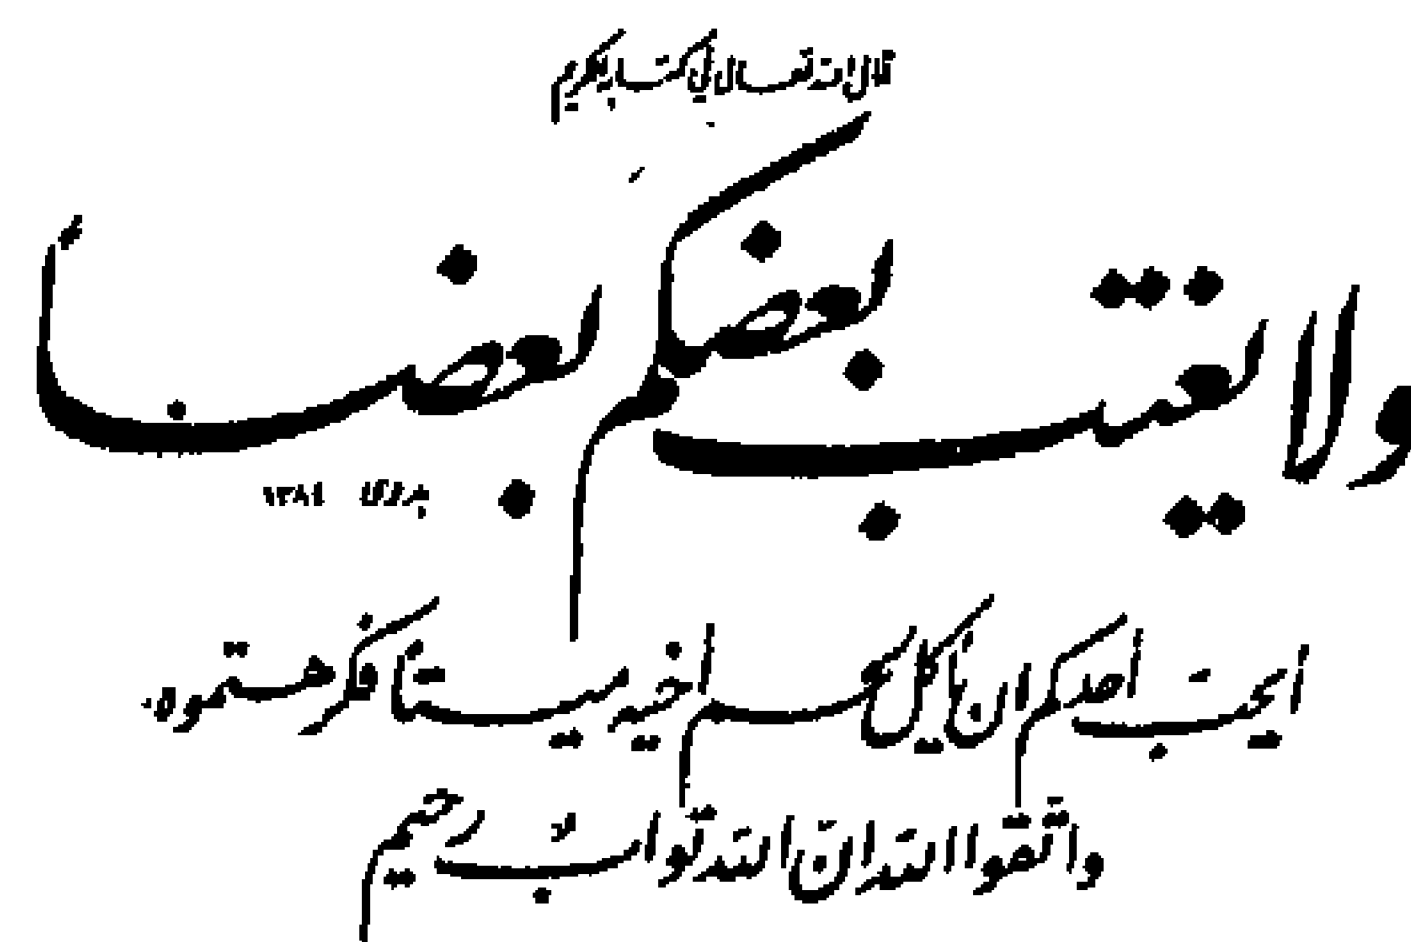 قال الله تعالى في كتابه الكريم
ولا يغتب بعضكم بعضاً
١٣٨٤
أيحب أحدكم ان ياكل لحم اخيه ميتاً فكرهتموه.
واتقوا الله انّ الله توابٌ رحيم